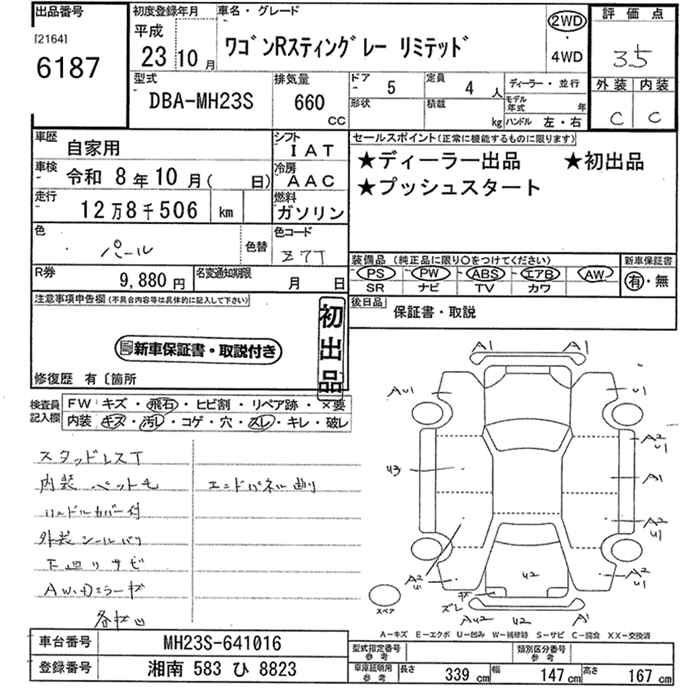 出品番号 初度登録年月 車名・グレード 評価点
[2164] 平成 2WD
6187 23 10月 ワゴンRスティングレー リミテッド ・ 3.5
4WD
型式 排気量 ドア 5 定員 4人 ディーラー・並行 外装 内装
DBA-MH23S 660 CC 形状 積載 kg モデル年式 年 C C
ハンドル 左・右
車歴 自家用 シフト IAT セールスポイント(正常に機能するものに限ります)
車検 令和 8年10月( 日) 冷房 AAC ★ディーラー出品 ★初出品
走行 12万8千506 km 燃料 ガソリン ★プッシュスタート
色 パール 色替 色コード Z7T
装備品 (純正品に限り○をつけてください) 新車保証書
R券 9,880円 名変通知期限 月 日 PS PW ABS エアB AW 有・無
SR ナビ TV カワ
注意事項申告欄(不具合内容等は具体的に記入して下さい) 初出品 後日品 保証書・取説
新車保証書・取説付き
修復歴 有〔箇所
検査員記入欄 FW キズ・飛石・ヒビ割・リペア跡・×要
内装 キズ・汚レ・コゲ・穴・スレ・キレ・破レ
スタッドレスT
内装 ペット毛 エンドパネル曲り
ハンドルカバー付
外装シールハリ
下廻りサビ
AW・Dミラーキズ
各キズ凹
A1 A1
AU1 U1
A2 U1
U3 A1
A2 U1
A2 U U2 A2 U1
スペア ズレ ヤ
AU2 U2 A1
A-キズ E-エクボ U-凹み W-補修跡 S-サビ C-腐食 XX-交換済
車台番号 MH23S-641016 型式指定番号 参考 類別区分番号 参考
登録番号 湘南 583 ひ 8823 車庫証明用 参考 長さ 339 cm 幅 147 cm 高さ 167 cm